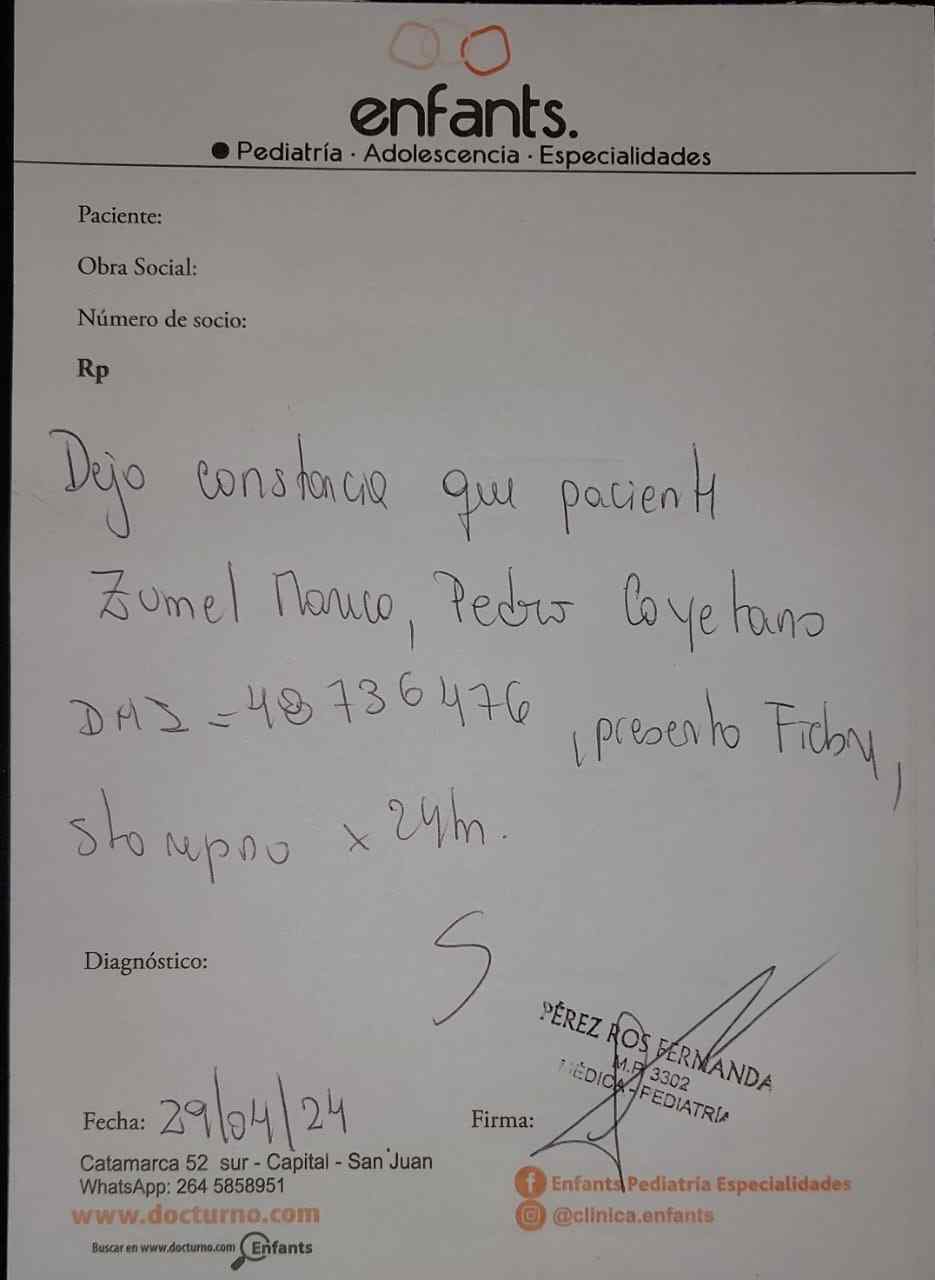 enfants.
Pediatría · Adolescencia · Especialidades
Paciente:
Obra Social:
Número de socio:
Rp
Dejo constancia que paciente
Zumel Marco, Pedro Cayetano
DNI = 48736476, presento Fiebre,
x 24h.
Diagnóstico:
S
PÉREZ ROS FERNANDA
M.P. 3302
MÉDICA - PEDIATRÍA
Fecha: 29/04/24
Firma:
Catamarca 52 sur - Capital - San Juan
WhatsApp: 264 5858951
www.docturno.com
Buscar en www.docturno.com Enfants
Enfants Pediatría Especialidades
@clinica.enfants